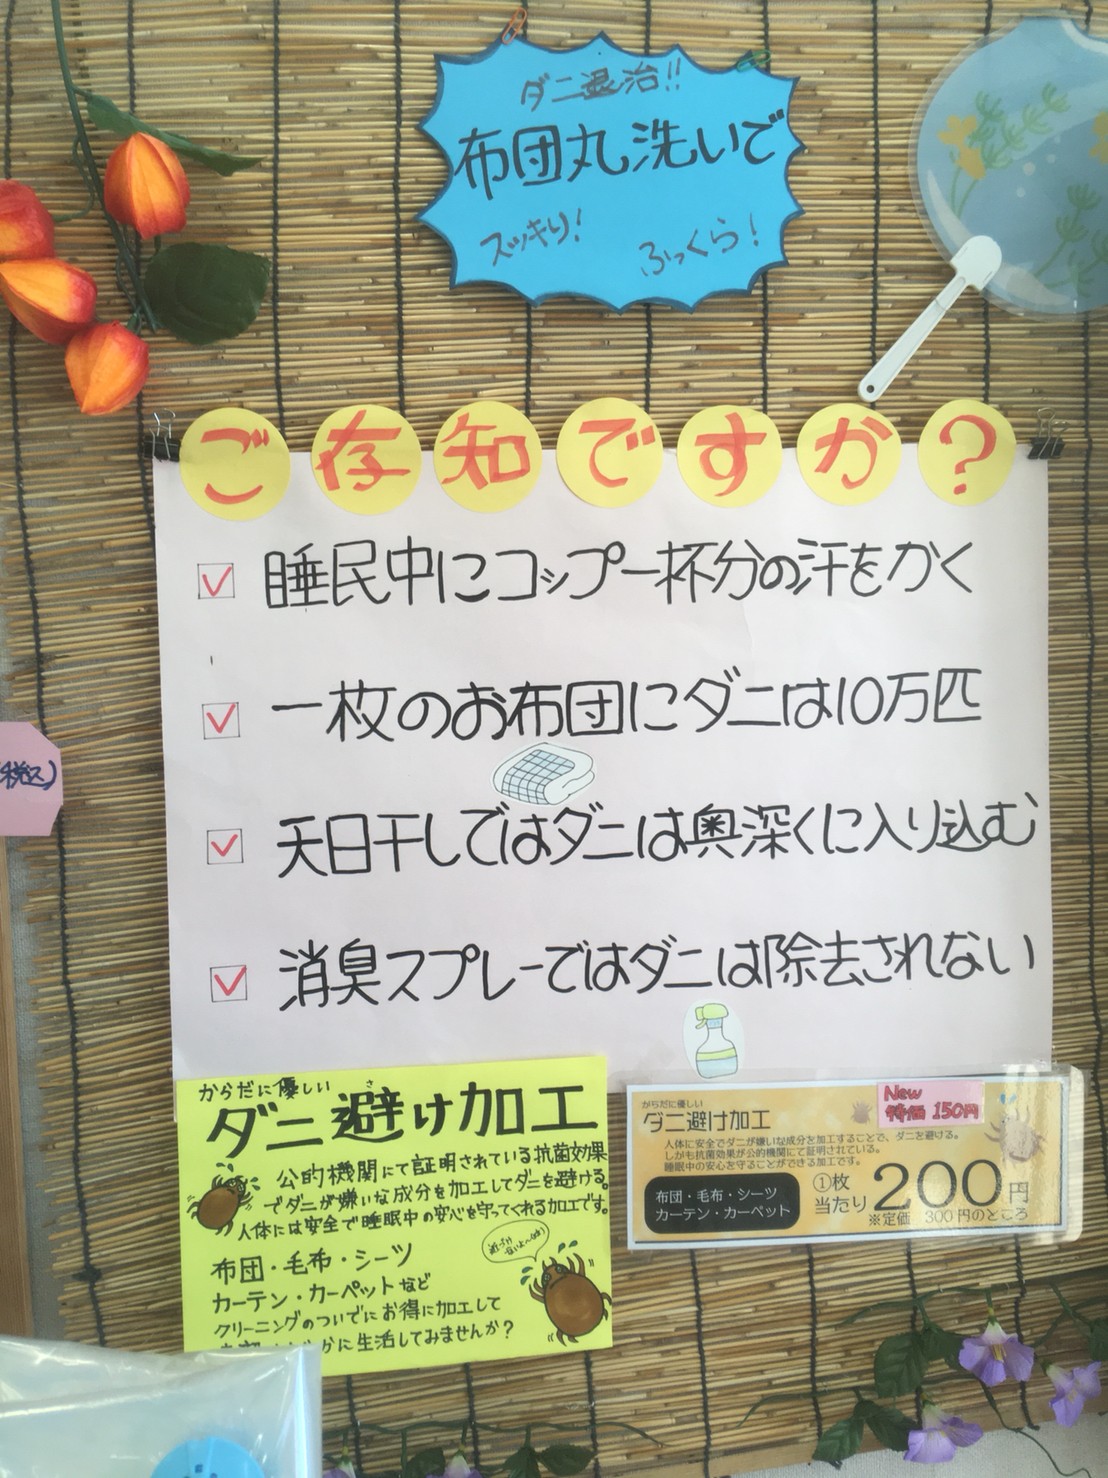 ダニ退治!!
布団丸洗いで
スッキリ!
ふっくら!
ご存知ですか?
睡民中にコップ一杯分の汗をかく
一枚のお布団にダニは10万匹
天日干しではダニは奥深くに入り込む
消臭スプレーではダニは除去されない
(税込)
からだに優しい
さ
ダニ避け加工
公的機関にて証明されている抗菌効果
でダニが嫌いな成分を加工してダニを避ける。
人体には安全で睡眠中の安心を守ってくれる加工です。
布団・毛布・シーツ
カーテン・カーペットなど
クリーニングのついでにお得に加工して
かに生活してみませんか?
New
特価 150円
からだに優しい
ダニ避け加工
人体に安全でダニが嫌いな成分を加工することで、ダニを避ける。
しかも抗菌効果が公的機関にて証明されている。
睡眠中の安心を守ることができる加工です。
布団・毛布・シーツ
カーテン・カーペット
①枚
当たり
200円
※定価 300円のところ